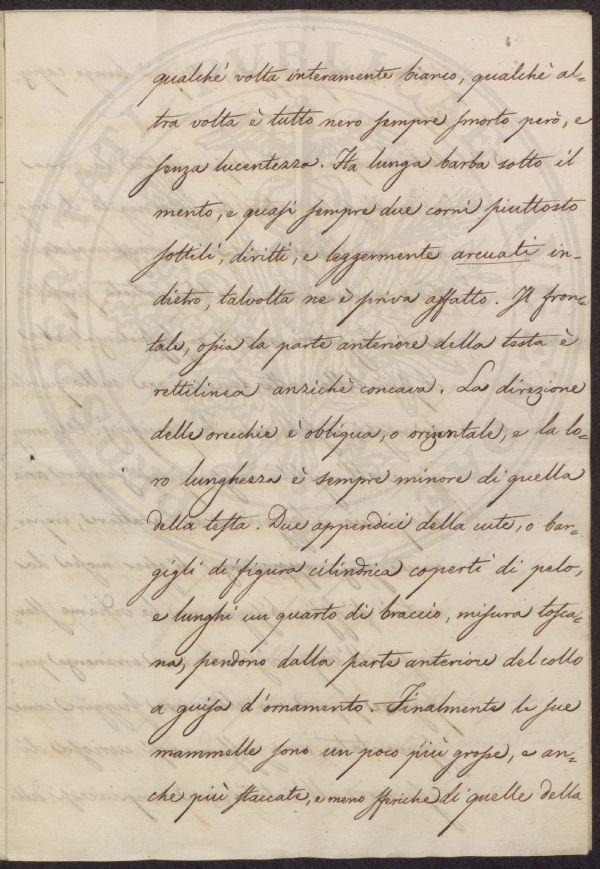 6
qualche volta interamente bianco, qualchè al=
tra volta è tutto nero sempre smorto però, e
senza lucentezza. Ha lunga barba sotto il
mento, e quasi sempre due corni piuttosto
sottili, diritti, e leggermente arcuati in=
dietro, talvolta ne è priva affatto. Il fron=
tale, ossia la parte anteriore della testa è
rettilinea anzichè concava. La direzione
delle orecchie è obliqua, o orizontale, e la lo=
ro lunghezza è sempre minore di quella
della testa. Due appendici della cute, o bar=
gigli di figura cilindrica coperti di pelo,
e lunghi un quarto di braccio, misura tosca=
na, pendono dalla parte anteriore del collo
a guisa d'ornamento. Finalmente le sue
mammelle sono un poco più grosse, e an=
che più staccate, e meno sferiche di quelle della